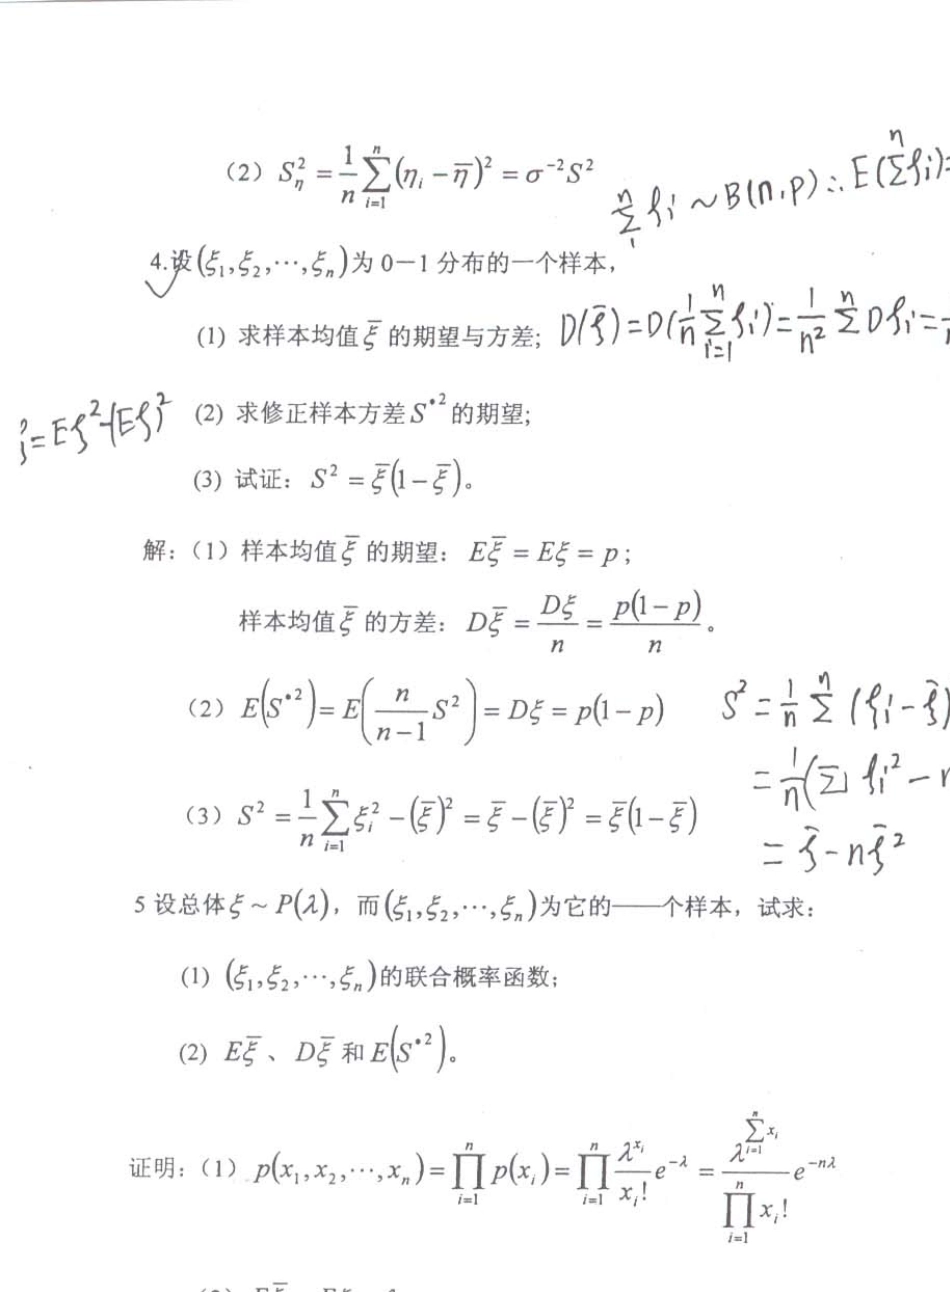 (2) $S_\eta^2 = \frac{1}{n}\sum_{i=1}^{n}(\eta_i - \overline{\eta})^2 = \sigma^{-2}S^2$
$\sum_{1}^{n} ξ_i \sim B(n,p)$ ∴ $E(\sum^{n} ξ_i)=$
4.设$(ξ_1,ξ_2,\cdots,ξ_n)$为 0—1 分布的一个样本,
(1) 求样本均值$\overline{ξ}$的期望与方差; $D(\overline{ξ})=D(\frac{1}{n}\sum_{i=1}^{n}ξ_i)=\frac{1}{n^2}\sum^{n}Dξ_i=$
$=Eξ^2-(Eξ)^2$
(2) 求修正样本方差$S^{\bullet 2}$的期望;
(3) 试证: $S^2 = \overline{ξ}(1-\overline{ξ})$。
解:(1)样本均值$\overline{ξ}$的期望: $E\overline{ξ} = Eξ = p$;
样本均值$\overline{ξ}$的方差: $D\overline{ξ} = \frac{Dξ}{n} = \frac{p(1-p)}{n}$。
(2) $E(S^{\bullet 2}) = E\left(\frac{n}{n-1}S^2\right) = Dξ = p(1-p)$
$S^2 = \frac{1}{n}\sum^{n}(ξ_i-\overline{ξ})$
$= \frac{1}{n}(\sum ξ_i^2 -$
(3) $S^2 = \frac{1}{n}\sum_{i=1}^{n}ξ_i^2 - (\overline{ξ})^2 = \overline{ξ} - (\overline{ξ})^2 = \overline{ξ}(1-\overline{ξ})$
$= \overline{ξ} - n\overline{ξ}^2$
5 设总体$ξ \sim P(λ)$, 而$(ξ_1,ξ_2,\cdots,ξ_n)$为它的——个样本, 试求:
(1) $(ξ_1,ξ_2,\cdots,ξ_n)$的联合概率函数;
(2) $E\overline{ξ}$、$D\overline{ξ}$和$E(S^{\bullet 2})$。
证明:(1) $p(x_1,x_2,\cdots,x_n) = \prod_{i=1}^{n}p(x_i) = \prod_{i=1}^{n}\frac{λ^{x_i}}{x_i!}e^{-λ} = \frac{λ^{\sum_{i=1}^{n}x_i}}{\prod_{i=1}^{n}x_i!}e^{-nλ}$